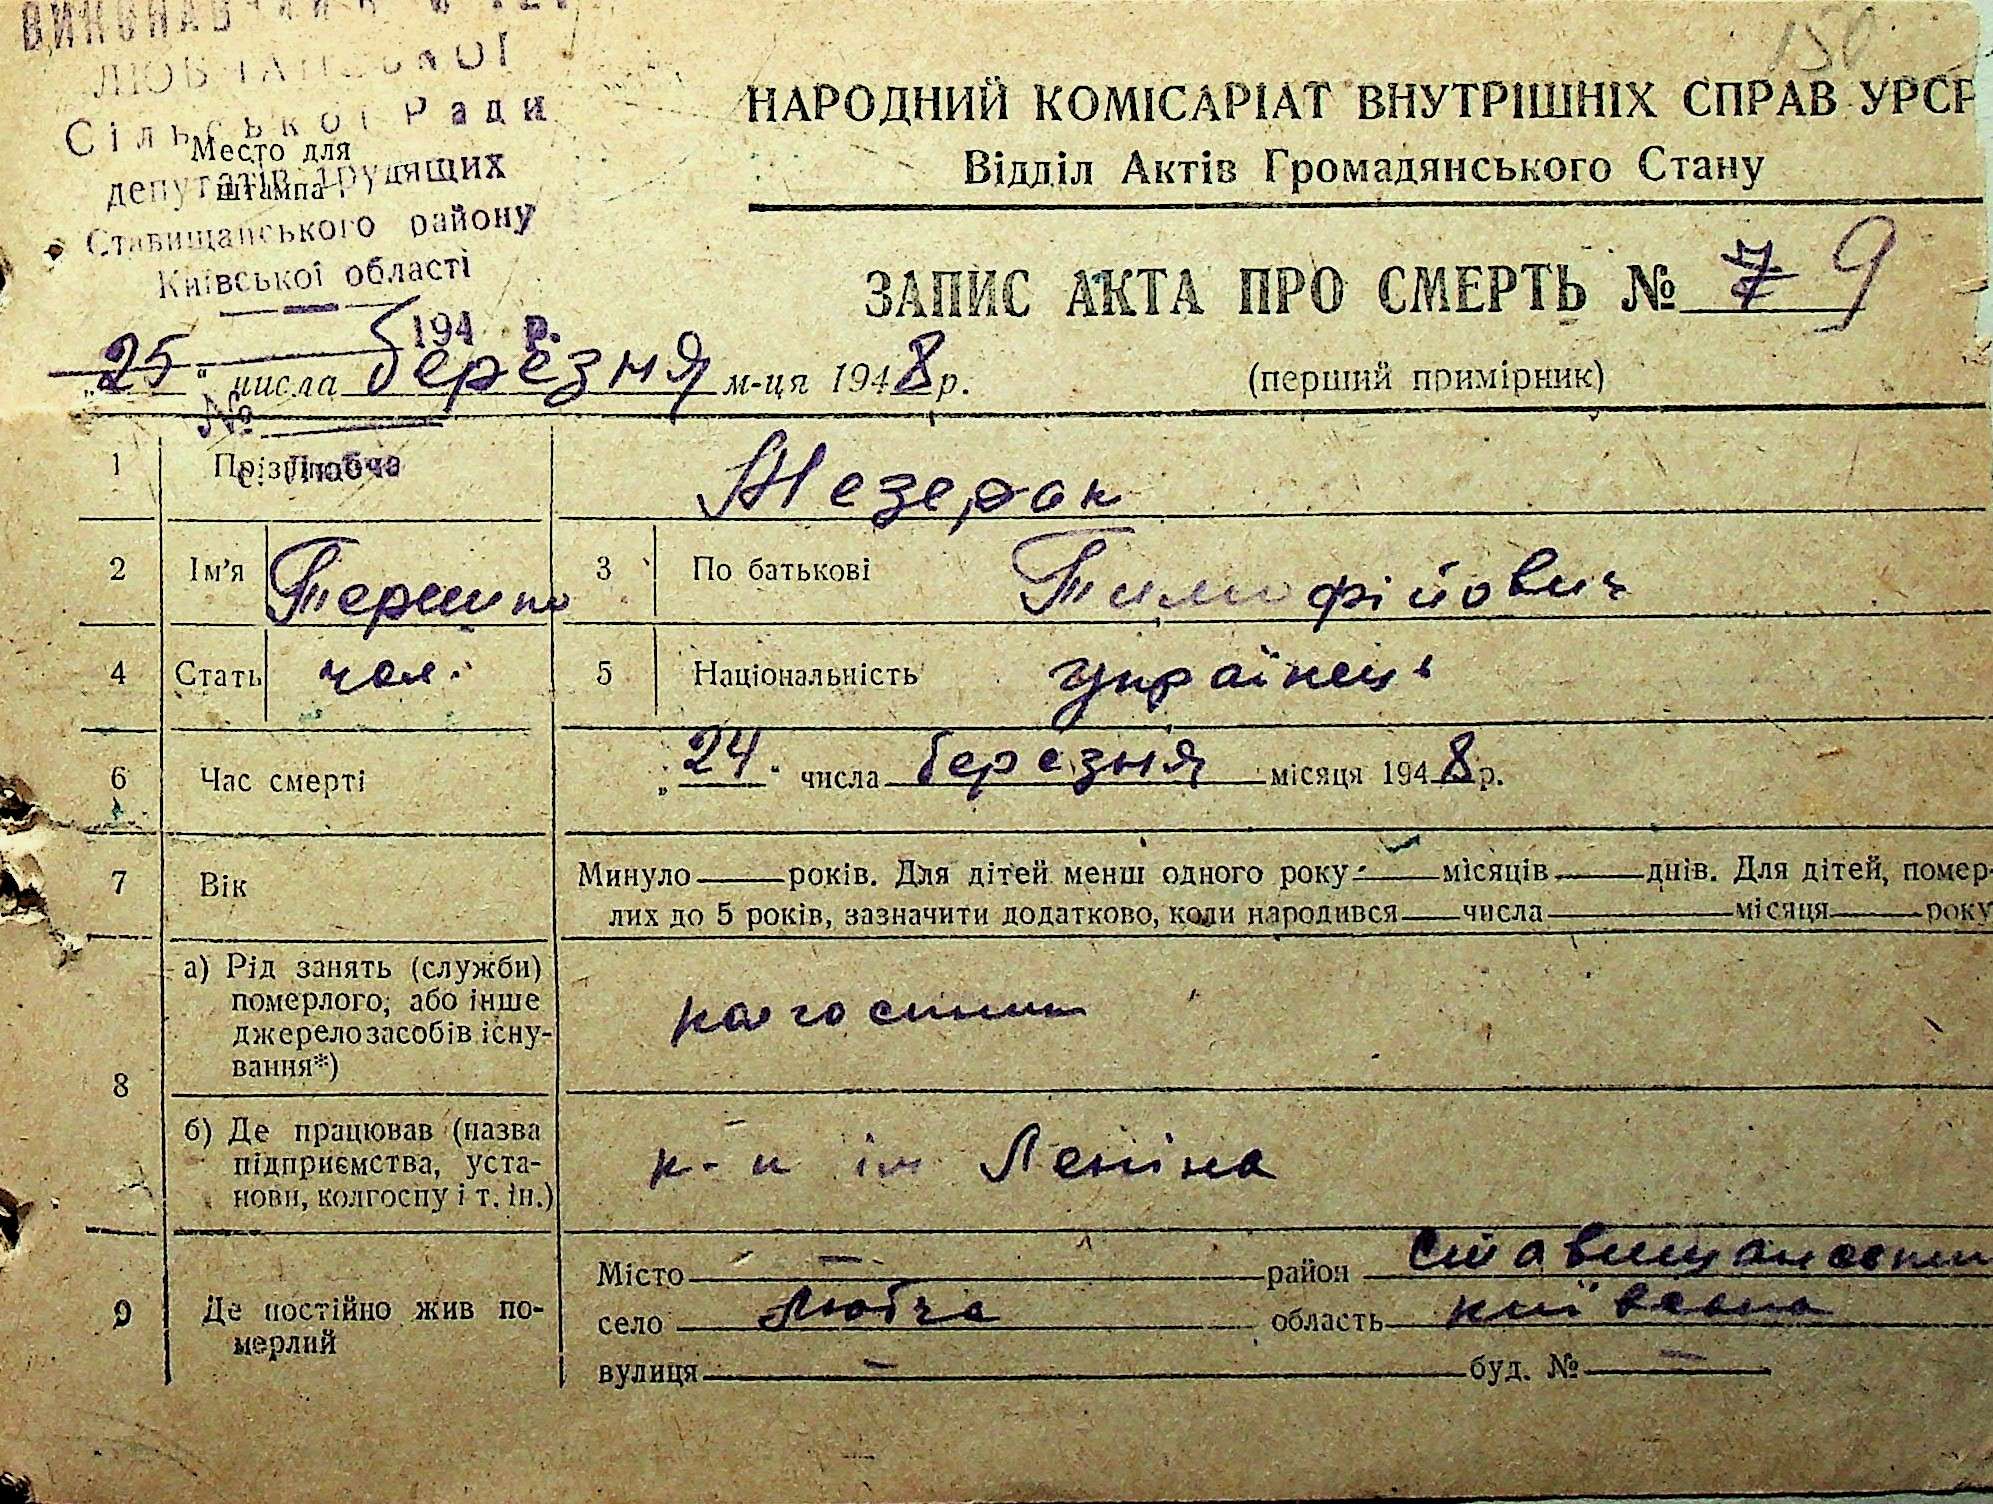 150
ВИКОНАВЧИЙ К-ТЕТ
ЛЮБЧАНСЬКОЇ
Сільської Ради
депутатів трудящих
Ставищанського району
Київської області
194 р.
№
с. Любча
Место для
штампа
НАРОДНИЙ КОМІСАРІАТ ВНУТРІШНІХ СПРАВ УРСР
Відділ Актів Громадянського Стану
ЗАПИС АКТА ПРО СМЕРТЬ № 7 9
„25“ числа березня м-ця 1948 р.
(перший примірник)
1 Прізвище Мезерак
2 Ім'я 3 По батькові Тимофійович
4 Стать чол. 5 Національність українець
6 Час смерті „24“ числа березня місяця 1948 р.
7 Вік Минуло років. Для дітей менш одного року місяців днів. Для дітей, помер-
лих до 5 років, зазначити додатково, коли народився числа місяця року
8 а) Рід занять (служби)
померлого, або інше
джерело засобів існу-
вання*)
колгоспник
б) Де працював (назва
підприємства, уста-
нови, колгоспу і т. ін.)
к-п ім Леніна
9 Де постійно жив по-
мерлий
Місто — район Ставищанський
село Любча область київська
вулиця — буд. № —